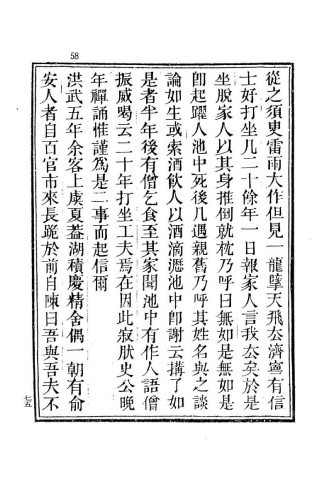 58
從之須臾雷雨大作但見一龍擘天飛厺濟寧有信
士好打坐凡二十餘年一日報家人言我厺矣於是
坐脫家人以其身推倒就枕乃呼曰無如是無如是
卽起躍人池中死後凡遇親舊乃呼其姓名與之談
論如生或索酒飮人以酒滴瀝池中卽謝云搆了如
是者半年後有僧乞食至其家聞池中有作人語僧
振威喝云二十年打坐工夫焉在因此寂肰史公晚
年禪誦惟謹爲是二事而起信爾
洪武五年余客上虞夏葢湖積慶精舍偶一朝有俞
安人者自百官市來長跪於前自陳曰吾與吾夫不
七五